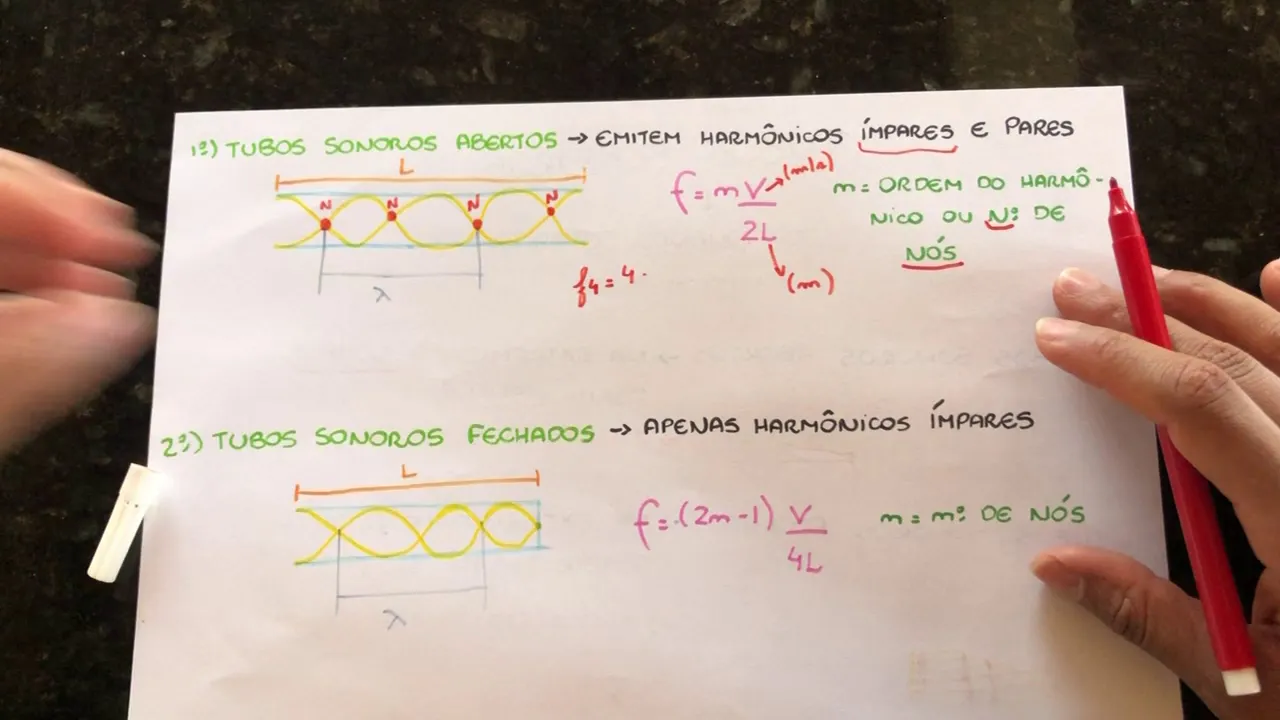 1º) TUBOS SONOROS ABERTOS → EMITEM HARMÔNICOS ÍMPARES E PARES
L
N N N N
λ
f = m V/2L
(m/s)
(m)
m = ORDEM DO HARMÔ-
NICO OU Nº DE
NÓS
f4 = 4.
2º) TUBOS SONOROS FECHADOS → APENAS HARMÔNICOS ÍMPARES
L
λ
f = (2m-1) V/4L
m = mº DE NÓS